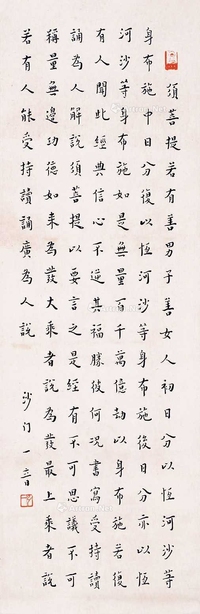 須菩提若有善男子善女人初日分以恒河沙等
身布施中日分復以恒河沙等身布施後日分亦以恒
河沙等身布施如是無量百千萬億劫以身布施若復
有人聞此經典信心不逆其福勝彼何況書寫受持讀
誦為人解說須菩提以要言之是經有不可思議不可
稱量無邊功德如來為發大乘者說為發最上乘者說
若有人能受持讀誦廣為人說
沙门一音